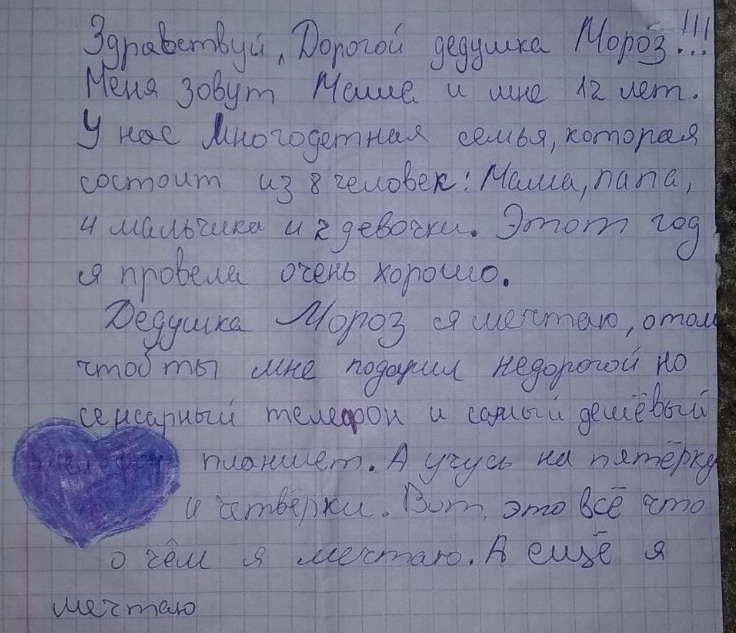 Здравствуй, Дорогой дедушка Мороз!!!
Меня зовут Маша и мне 12 лет.
У нас Многодетная семья, которая
состоит из 8 человек: Мама, папа,
4 мальчика и 2 девочки. Этот год
я провела очень хорошо.
Дедушка Мороз я мечтаю, о том
чтоб ты мне подарил недорогой но
сенсарный телефон и самый дешёвый
планшет. А учусь на пятёрку
и четвёрки. Вот, это всё что
о чём я мечтаю. А ещё я
мечтаю